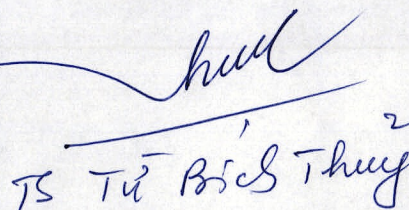 TS Từ Bích Thuỷ